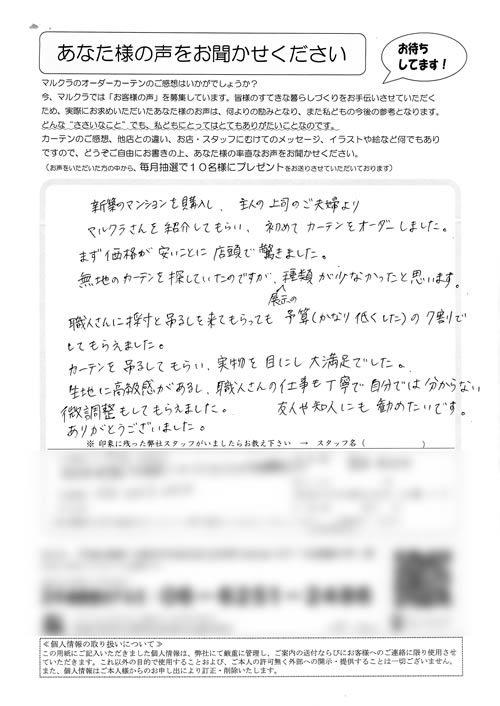 あなた様の声をお聞かせください
お待ち
してます！
マルクラのオーダーカーテンのご感想はいかがでしょうか？
今、マルクラでは「お客様の声」を募集しています。皆様のすてきな暮らしづくりをお手伝いさせていただく
ため、実際にお求めいただいたあなた様のお声は、何よりの励みとなり、また私どもの今後の参考となります。
どんな“ささいなこと”でも、私どもにとってはとてもありがたいことなのです。
カーテンのご感想、他店との違い、お店・スタッフにむけてのメッセージ、イラストや絵など何でもあり
ですので、どうぞご自由にお書きの上、あなた様の率直なお声をお聞かせください。
（お声をいただいた方の中から、毎月抽選で１０名様にプレゼントをお送りさせていただいております）
新築のマンションを購入し、主人の上司のご夫婦より
マルクラさんを紹介してもらい、初めてカーテンをオーダーしました。
まず価格が安いことに店頭で驚きました。
無地のカーテンを探していたのですが、種類が少なかったと思います。
展示の
職人さんに採寸と吊るしを来てもらっても予算(かなり低くした)の7割で
してもらえました。
カーテンを吊るしてもらい、実物を目にし大満足でした。
生地に高級感があるし、職人さんの仕事も丁寧で自分では分からない
微調整もしてもらえました。 友人や知人にも勧めたいです。
ありがとうございました。
※ 印象に残った弊社スタッフがいましたらお教え下さい → スタッフ名（ ）
06-6251-2486
≪個人情報の取り扱いについて≫
この用紙にご記入いただきました個人情報は、弊社にて厳重に管理し、ご案内の送付ならびにお客様へのご連絡に限り使用させ
ていただきます。これ以外の目的で使用することおよび、ご本人の許可無く外部への開示・提供することは一切ございません。
また、個人情報はご本人様からのお申し出により訂正・削除いたします。